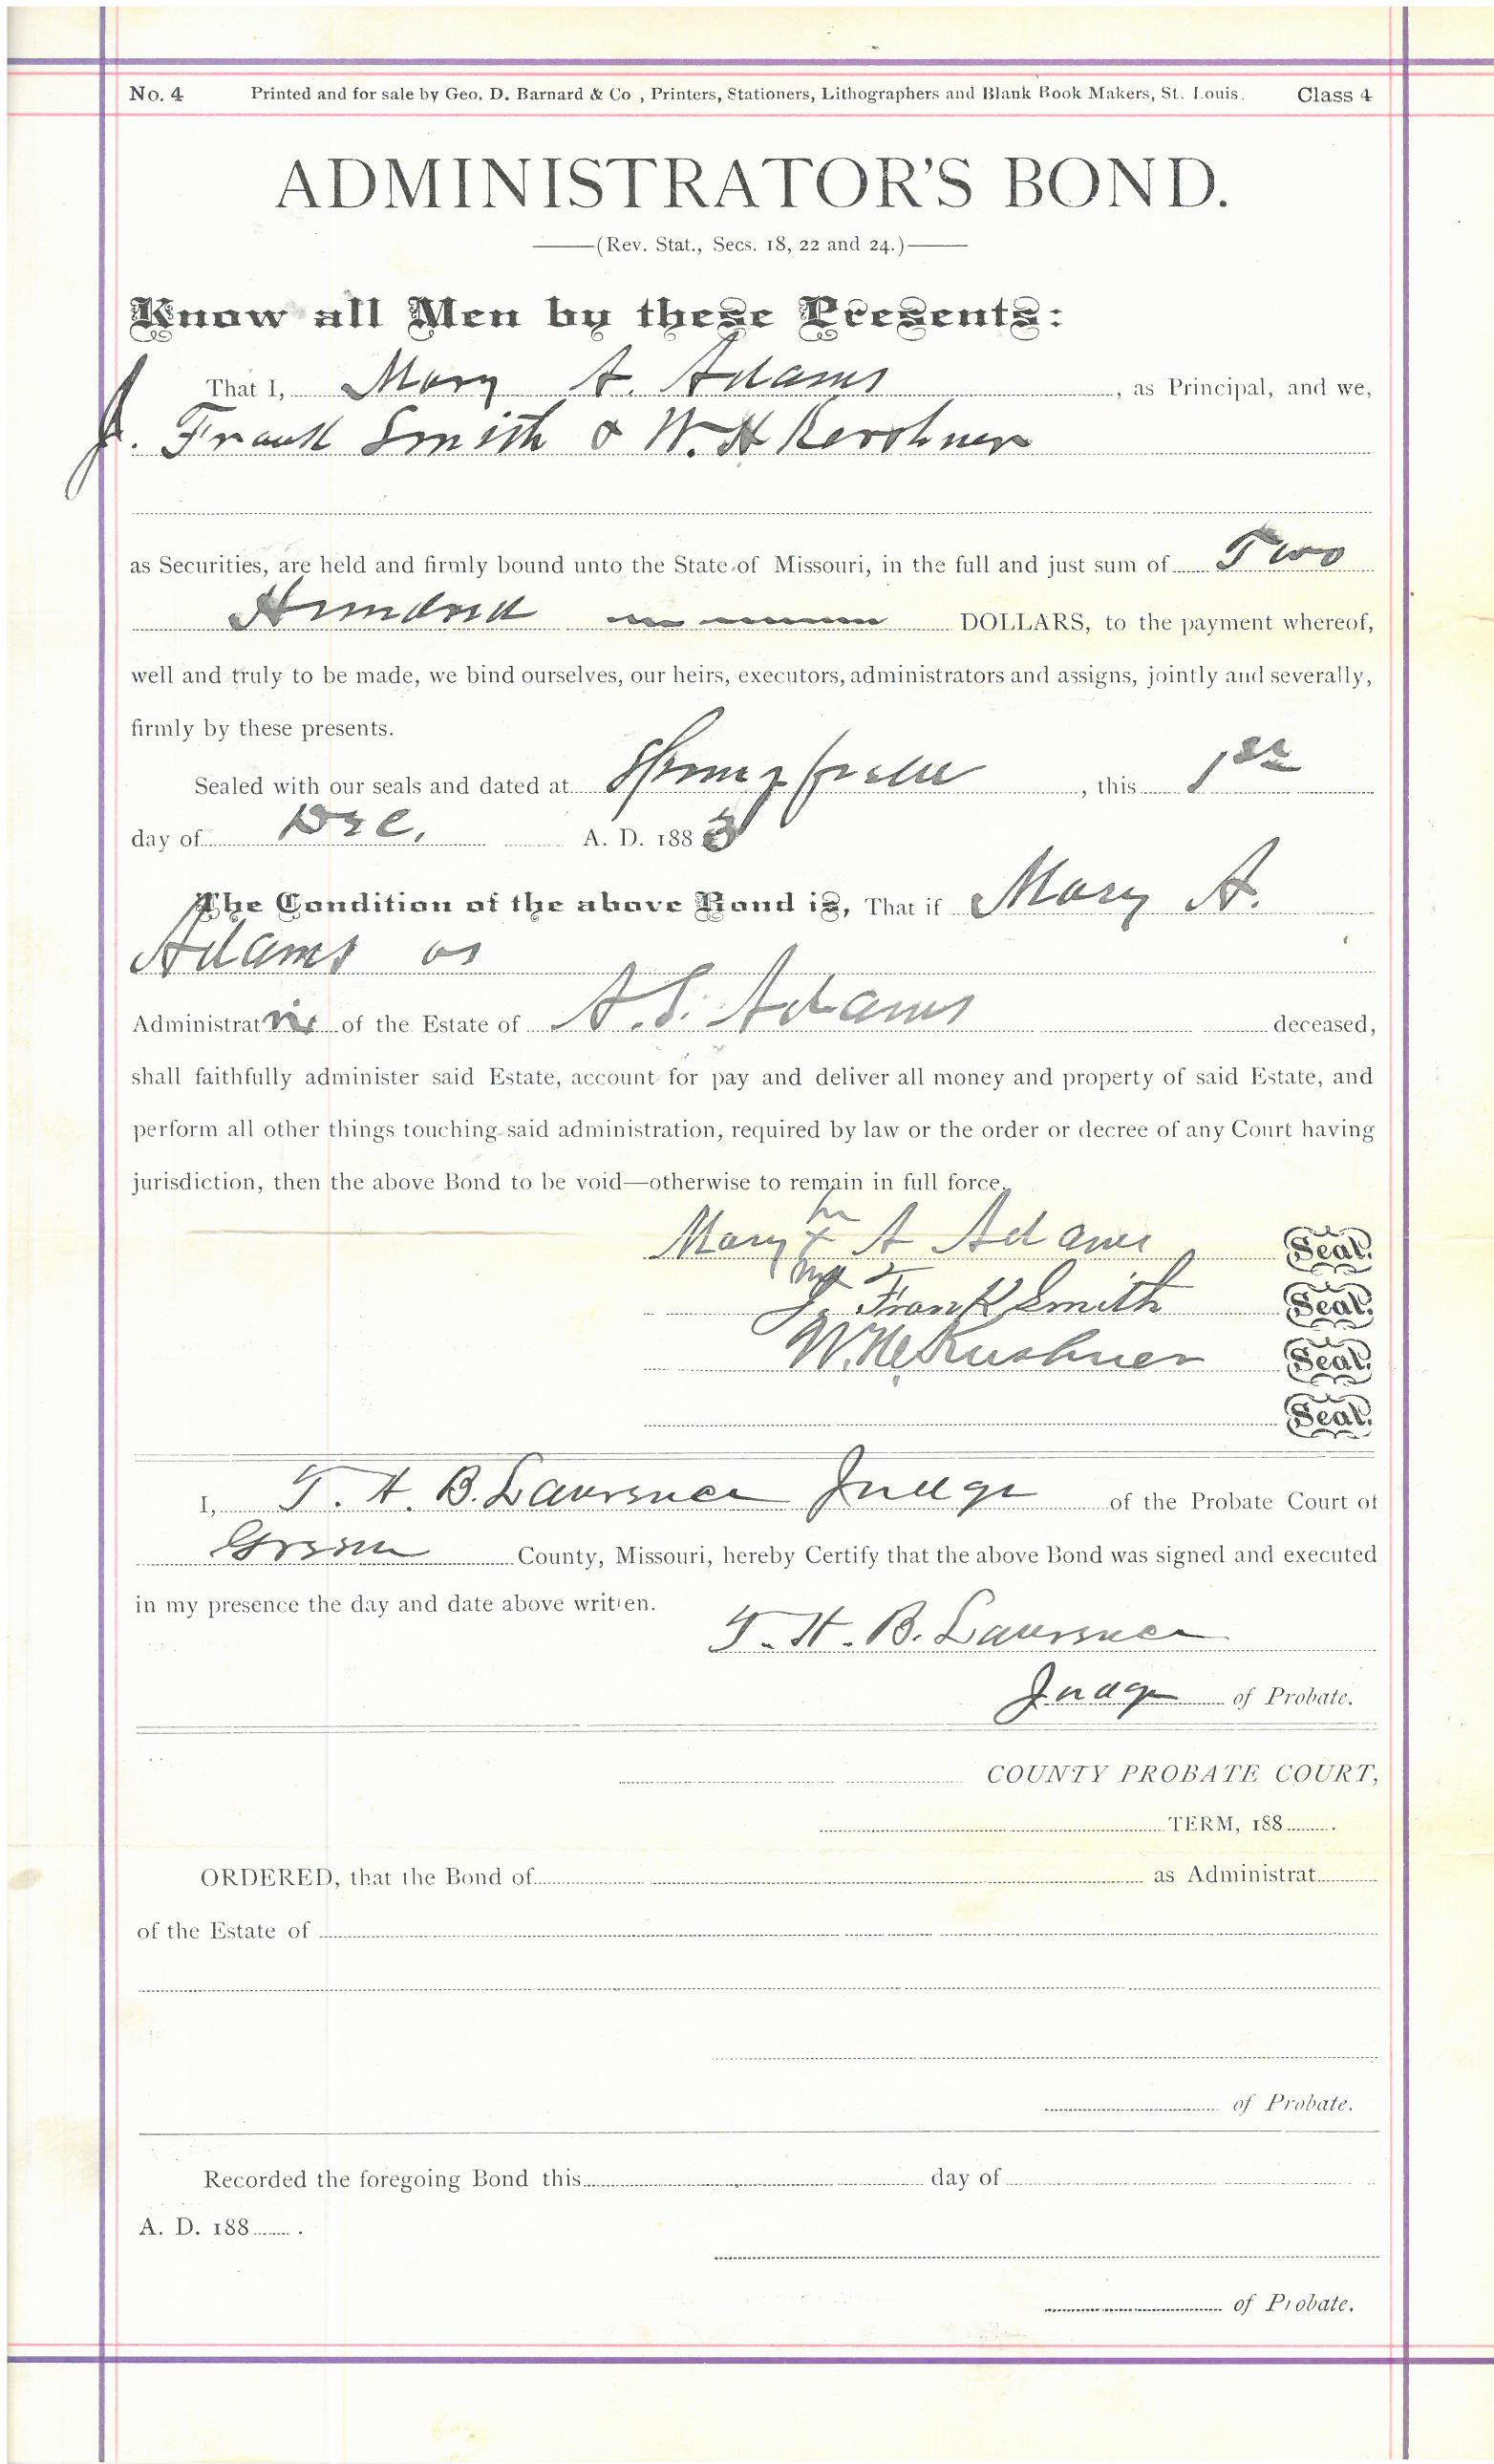 No. 4 Printed and for sale by Geo. D. Barnard & Co , Printers, Stationers, Lithographers and Blank Book Makers, St. Louis. Class 4
ADMINISTRATOR'S BOND.
(Rev. Stat., Secs. 18, 22 and 24.)
Know all Men by these Presents:
That I, Mary A. Adams, as Principal, and we,
J. Frank Smith & W. H Kershner
as Securities, are held and firmly bound unto the State of Missouri, in the full and just sum of Two
Hundred DOLLARS, to the payment whereof,
well and truly to be made, we bind ourselves, our heirs, executors, administrators and assigns, jointly and severally,
firmly by these presents.
Sealed with our seals and dated at Springfield, this 1st
day of Dec. A. D. 188
The Condition of the above Bond is, That if Mary A.
Adams as
Administratrix of the Estate of A. S. Adams deceased,
shall faithfully administer said Estate, account for pay and deliver all money and property of said Estate, and
perform all other things touching said administration, required by law or the order or decree of any Court having
jurisdiction, then the above Bond to be void—otherwise to remain in full force.
Mary x A Adams Seal.
J. Frank Smith Seal.
W. H. Kershner Seal.
Seal.
I, T. H. B. Lawrence Judge of the Probate Court of
Green County, Missouri, hereby Certify that the above Bond was signed and executed
in my presence the day and date above written.
T. H. B. Lawrence
Judge of Probate.
COUNTY PROBATE COURT,
TERM, 188 .
ORDERED, that the Bond of as Administrat
of the Estate of
of Probate.
Recorded the foregoing Bond this day of
A. D. 188 .
of Probate.